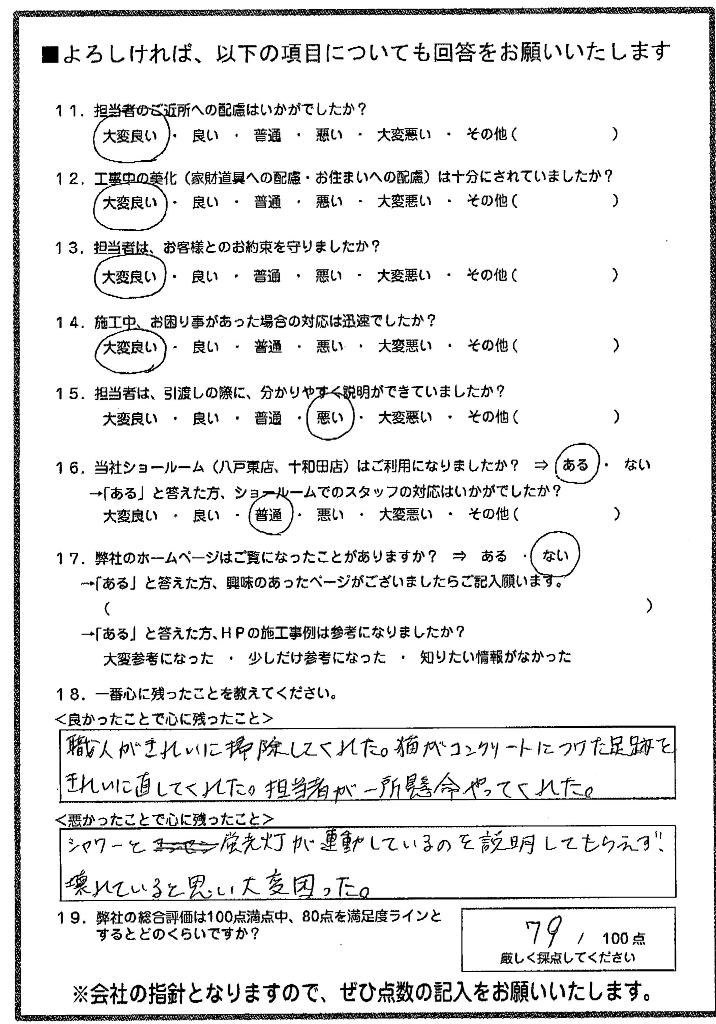 ■よろしければ、以下の項目についても回答をお願いいたします
11．担当者のご近所への配慮はいかがでしたか？
大変良い ・ 良い ・ 普通 ・ 悪い ・ 大変悪い ・ その他（　　　）
12．工事中の美化（家財道具への配慮・お住まいへの配慮）は十分にされていましたか？
大変良い ・ 良い ・ 普通 ・ 悪い ・ 大変悪い ・ その他（　　　）
13．担当者は、お客様とのお約束を守りましたか？
大変良い ・ 良い ・ 普通 ・ 悪い ・ 大変悪い ・ その他（　　　）
14．施工中、お困り事があった場合の対応は迅速でしたか？
大変良い ・ 良い ・ 普通 ・ 悪い ・ 大変悪い ・ その他（　　　）
15．担当者は、引渡しの際に、分かりやすく説明ができていましたか？
大変良い ・ 良い ・ 普通 ・ 悪い ・ 大変悪い ・ その他（　　　）
16．当社ショールーム（八戸東店、十和田店）はご利用になりましたか？ ⇒ ある ・ ない
→「ある」と答えた方、ショールームでのスタッフの対応はいかがでしたか？
大変良い ・ 良い ・ 普通 ・ 悪い ・ 大変悪い ・ その他（　　　）
17．弊社のホームページはご覧になったことがありますか？ ⇒ ある ・ ない
→「ある」と答えた方、興味のあったページがございましたらご記入願います。
（　　　）
→「ある」と答えた方、HPの施工事例は参考になりましたか？
大変参考になった ・ 少しだけ参考になった ・ 知りたい情報がなかった
18．一番心に残ったことを教えてください。
＜良かったことで心に残ったこと＞
職人がきれいに掃除してくれた。猫がコンクリートにつけた足跡を
きれいに直してくれた。担当者が一所懸命やってくれた。
＜悪かったことで心に残ったこと＞
シャワーと蛍光灯が連動しているのを説明してもらえず、
壊れていると思い大変困った。
19．弊社の総合評価は100点満点中、80点を満足度ラインと
するとどのくらいですか？
79 / 100点
厳しく採点してください
※会社の指針となりますので、ぜひ点数の記入をお願いいたします。